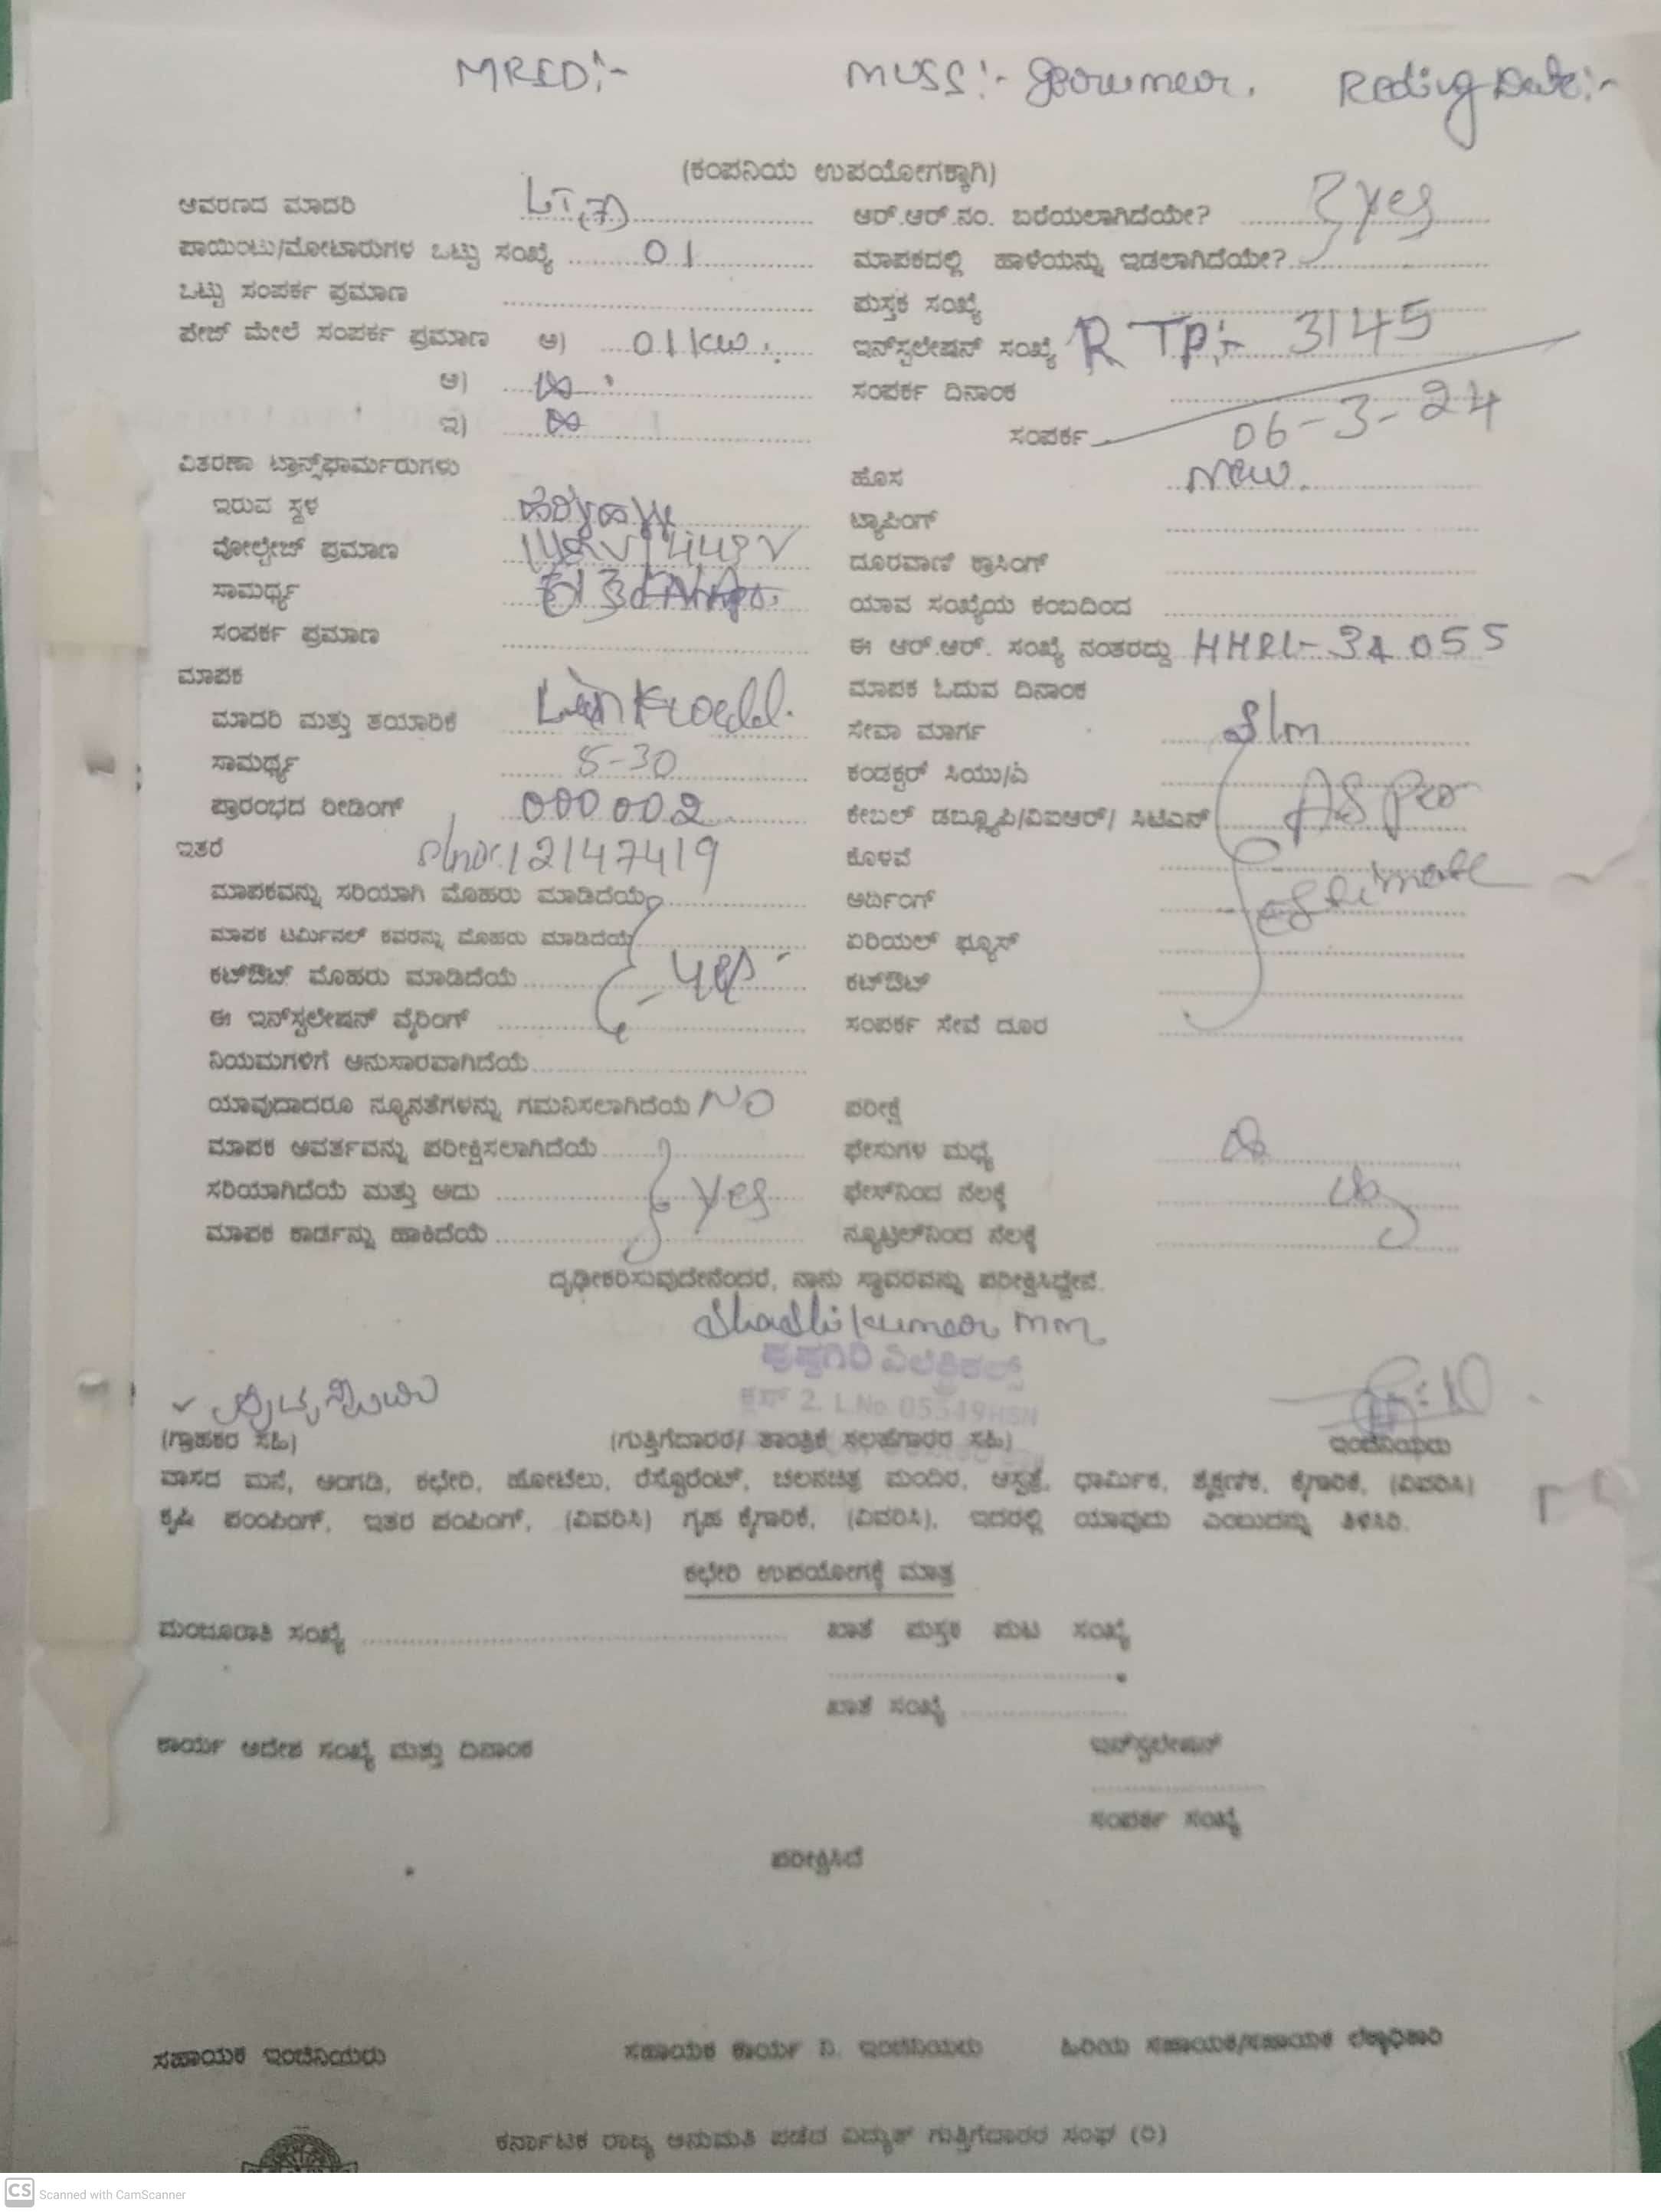 MRED:- MUSS:- Reding Date:-
(ಕಂಪನಿಯ ಉಪಯೋಗಕ್ಕಾಗಿ)
ಆವರಣದ ಮಾದರಿ LT(7) ಆರ್.ಆರ್.ನಂ. ಬರೆಯಲಾಗಿದೆಯೇ? yes
ಪಾಯಿಂಟು/ಮೋಟಾರುಗಳ ಒಟ್ಟು ಸಂಖ್ಯೆ 01 ಮಾಪಕದಲ್ಲಿ ಹಾಳೆಯನ್ನು ಇಡಲಾಗಿದೆಯೇ?
ಒಟ್ಟು ಸಂಪರ್ಕ ಪ್ರಮಾಣ ಪುಸ್ತಕ ಸಂಖ್ಯೆ
ಪೇಜ್ ಮೇಲೆ ಸಂಪರ್ಕ ಪ್ರಮಾಣ ಅ) 01 kw ಇನ್‌ಸ್ಟಲೇಷನ್ ಸಂಖ್ಯೆ R TP:- 3145
ಆ) ಸಂಪರ್ಕ ದಿನಾಂಕ
ಇ) ಸಂಪರ್ಕ 06-3-24
ವಿತರಣಾ ಟ್ರಾನ್ಸ್‌ಫಾರ್ಮರುಗಳು ಹೊಸ new.
ಇರುವ ಸ್ಥಳ ಟ್ಯಾಪಿಂಗ್
ವೋಲ್ಟೇಜ್ ಪ್ರಮಾಣ ದೂರವಾಣಿ ಕ್ರಾಸಿಂಗ್
ಸಾಮರ್ಥ್ಯ ಯಾವ ಸಂಖ್ಯೆಯ ಕಂಬದಿಂದ
ಸಂಪರ್ಕ ಪ್ರಮಾಣ ಈ ಆರ್.ಆರ್. ಸಂಖ್ಯೆ ನಂತರದ್ದು HHRL-34055
ಮಾಪಕ ಮಾಪಕ ಓದುವ ದಿನಾಂಕ
ಮಾದರಿ ಮತ್ತು ತಯಾರಿಕೆ ಸೇವಾ ಮಾರ್ಗ
ಸಾಮರ್ಥ್ಯ 5-30 ಕಂಡಕ್ಟರ್ ಸಿಯು/ಎ
ಪ್ರಾರಂಭದ ರೀಡಿಂಗ್ 000002 ಕೇಬಲ್ ಡಬ್ಲ್ಯೂಪಿ/ವಿಐಆರ್/ ಸಿಟಿಎಸ್ AS per
ಇತರೆ Slno:12147419 ಕೊಳವೆ
ಮಾಪಕವನ್ನು ಸರಿಯಾಗಿ ಮೊಹರು ಮಾಡಿದೆಯೆ ಅರ್ದಿಂಗ್ estimate
ಮಾಪಕ ಟರ್ಮಿನಲ್ ಕವರನ್ನು ಮೊಹರು ಮಾಡಿದೆಯೆ ಏರಿಯಲ್ ಫ್ಯೂಸ್
ಕಟ್‌ಔಟ್ ಮೊಹರು ಮಾಡಿದೆಯೆ yes ಕಟ್‌ಔಟ್
ಈ ಇನ್‌ಸ್ಟಲೇಷನ್ ವೈರಿಂಗ್ ಸಂಪರ್ಕ ಸೇವೆ ದೂರ
ನಿಯಮಗಳಿಗೆ ಅನುಸಾರವಾಗಿದೆಯೆ
ಯಾವುದಾದರೂ ನ್ಯೂನತೆಗಳನ್ನು ಗಮನಿಸಲಾಗಿದೆಯೆ NO ಪರೀಕ್ಷೆ
ಮಾಪಕ ಆವರ್ತವನ್ನು ಪರೀಕ್ಷಿಸಲಾಗಿದೆಯೆ ಫೇಸುಗಳ ಮಧ್ಯೆ
ಸರಿಯಾಗಿದೆಯೆ ಮತ್ತು ಅದು yes ಫೇಸ್‌ನಿಂದ ನೆಲಕ್ಕೆ
ಮಾಪಕ ಕಾರ್ಡನ್ನು ಹಾಕಿದೆಯೆ ನ್ಯೂಟ್ರಲ್‌ನಿಂದ ನೆಲಕ್ಕೆ
ದೃಢೀಕರಿಸುವುದೇನೆಂದರೆ, ನಾನು ಸ್ಥಾವರವನ್ನು ಪರೀಕ್ಷಿಸಿದ್ದೇನೆ.
Shashikumar mm
ಪುಷ್ಪಗಿರಿ ಎಲೆಕ್ಟ್ರಿಕಲ್ಸ್
ಕ್ಲಾಸ್ 2. L.No. 05549HSN
(ಗ್ರಾಹಕರ ಸಹಿ) (ಗುತ್ತಿಗೆದಾರರ/ ತಾಂತ್ರಿಕ ಸಲಹೆಗಾರರ ಸಹಿ) ಇಂಜಿನಿಯರು
ವಾಸದ ಮನೆ, ಅಂಗಡಿ, ಕಛೇರಿ, ಹೋಟೆಲು, ರೆಸ್ಟೊರೆಂಟ್, ಚಲನಚಿತ್ರ ಮಂದಿರ, ಆಸ್ಪತ್ರೆ, ಧಾರ್ಮಿಕ, ಶೈಕ್ಷಣಿಕ, ಕೈಗಾರಿಕೆ, (ವಿವರಿಸಿ)
ಕೃಷಿ ಪಂಪಿಂಗ್, ಇತರ ಪಂಪಿಂಗ್, (ವಿವರಿಸಿ) ಗೃಹ ಕೈಗಾರಿಕೆ, (ವಿವರಿಸಿ), ಇದರಲ್ಲಿ ಯಾವುದು ಎಂಬುದನ್ನು ತಿಳಿಸಿರಿ.
ಕಛೇರಿ ಉಪಯೋಗಕ್ಕೆ ಮಾತ್ರ
ಮಂಜೂರಾತಿ ಸಂಖ್ಯೆ ಖಾತೆ ಪುಸ್ತಕ ಪುಟ ಸಂಖ್ಯೆ
ಖಾತೆ ಸಂಖ್ಯೆ
ಕಾರ್ಯ ಆದೇಶ ಸಂಖ್ಯೆ ಮತ್ತು ದಿನಾಂಕ ಇನ್‌ಸ್ಟಲೇಷನ್
ಸಂಪರ್ಕ ಸಂಖ್ಯೆ
ಪರೀಕ್ಷಿಸಿದೆ
ಸಹಾಯಕ ಇಂಜಿನಿಯರು ಸಹಾಯಕ ಕಾರ್ಯ ನಿ. ಇಂಜಿನಿಯರು ಹಿರಿಯ ಸಹಾಯಕ/ಸಹಾಯಕ ಲೆಕ್ಕಾಧಿಕಾರಿ
ಕರ್ನಾಟಕ ರಾಜ್ಯ ಅನುಮತಿ ಪಡೆದ ವಿದ್ಯುತ್ ಗುತ್ತಿಗೆದಾರರ ಸಂಘ (ರಿ)
CS Scanned with CamScanner